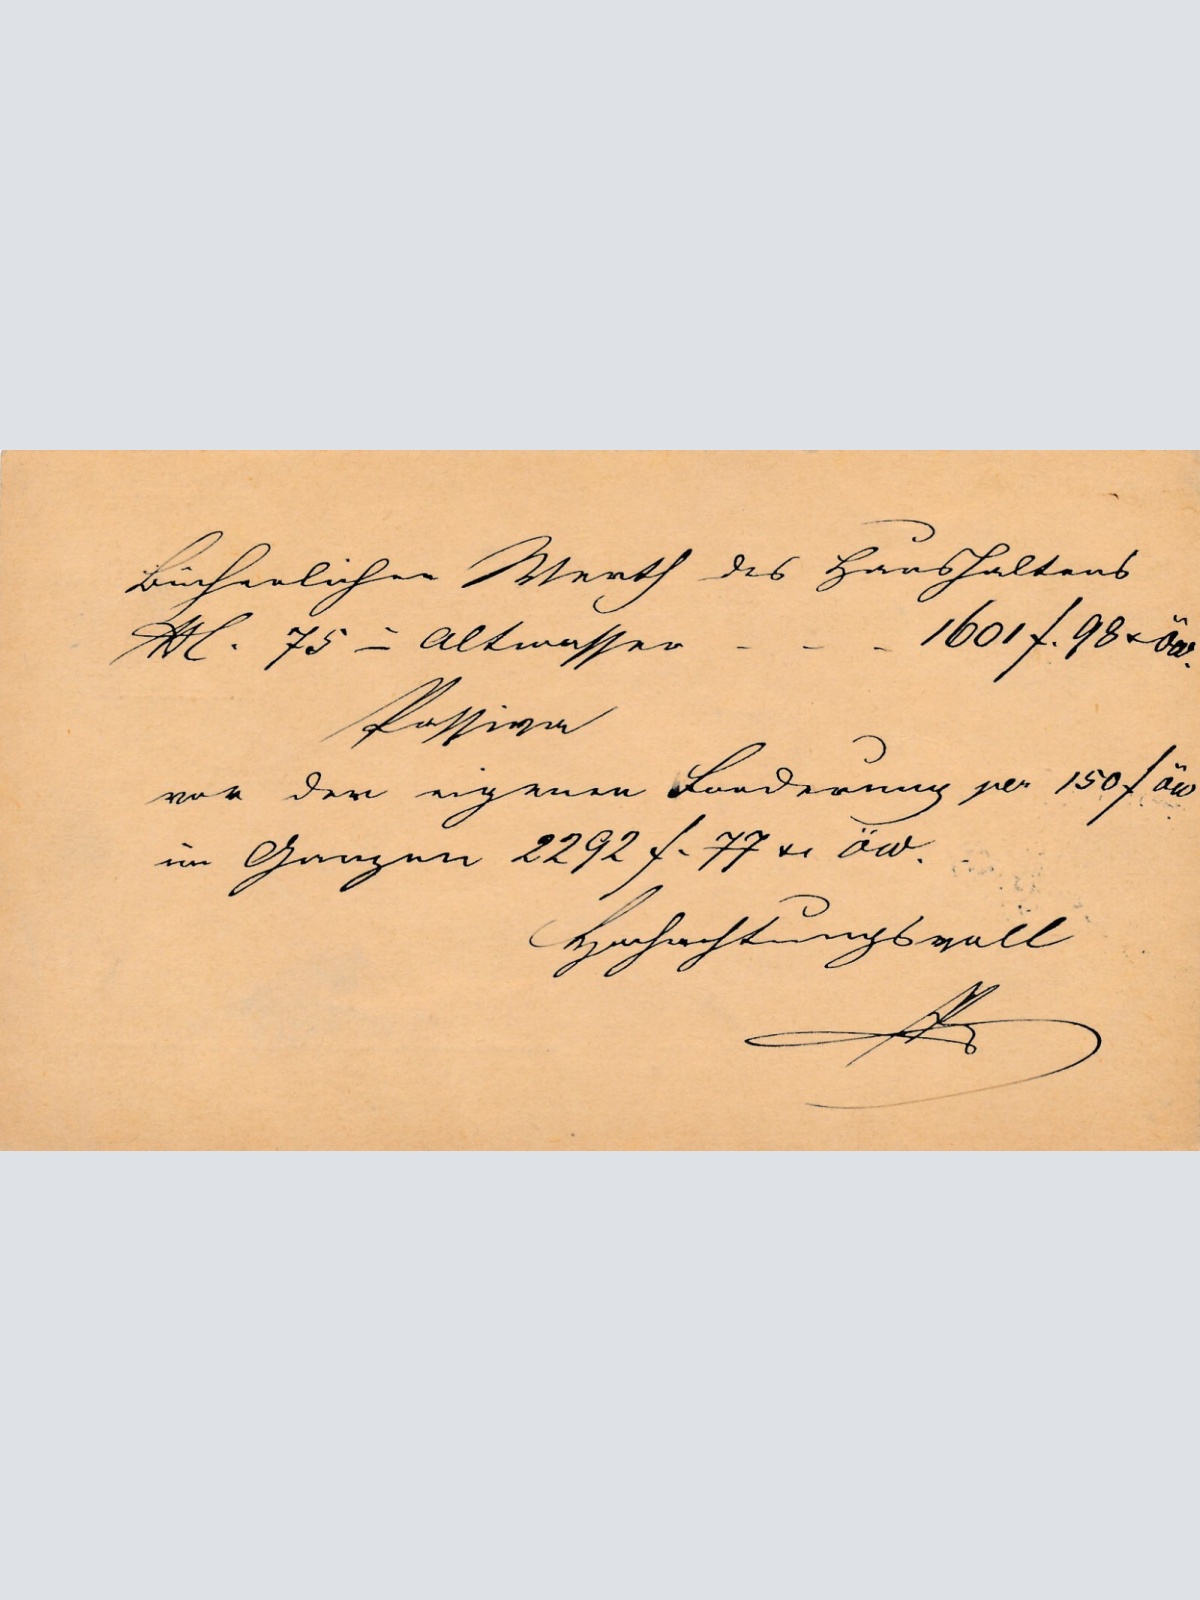 Bücherlicher Werth des Haushaltens
N. 75 in Altwasser - - - 1601 f. 98 x öw.
Passiva
vor der eigenen Forderung per 150 f öw
im Ganzen 2292 f. 77 xr öw.
Hochachtungsvoll